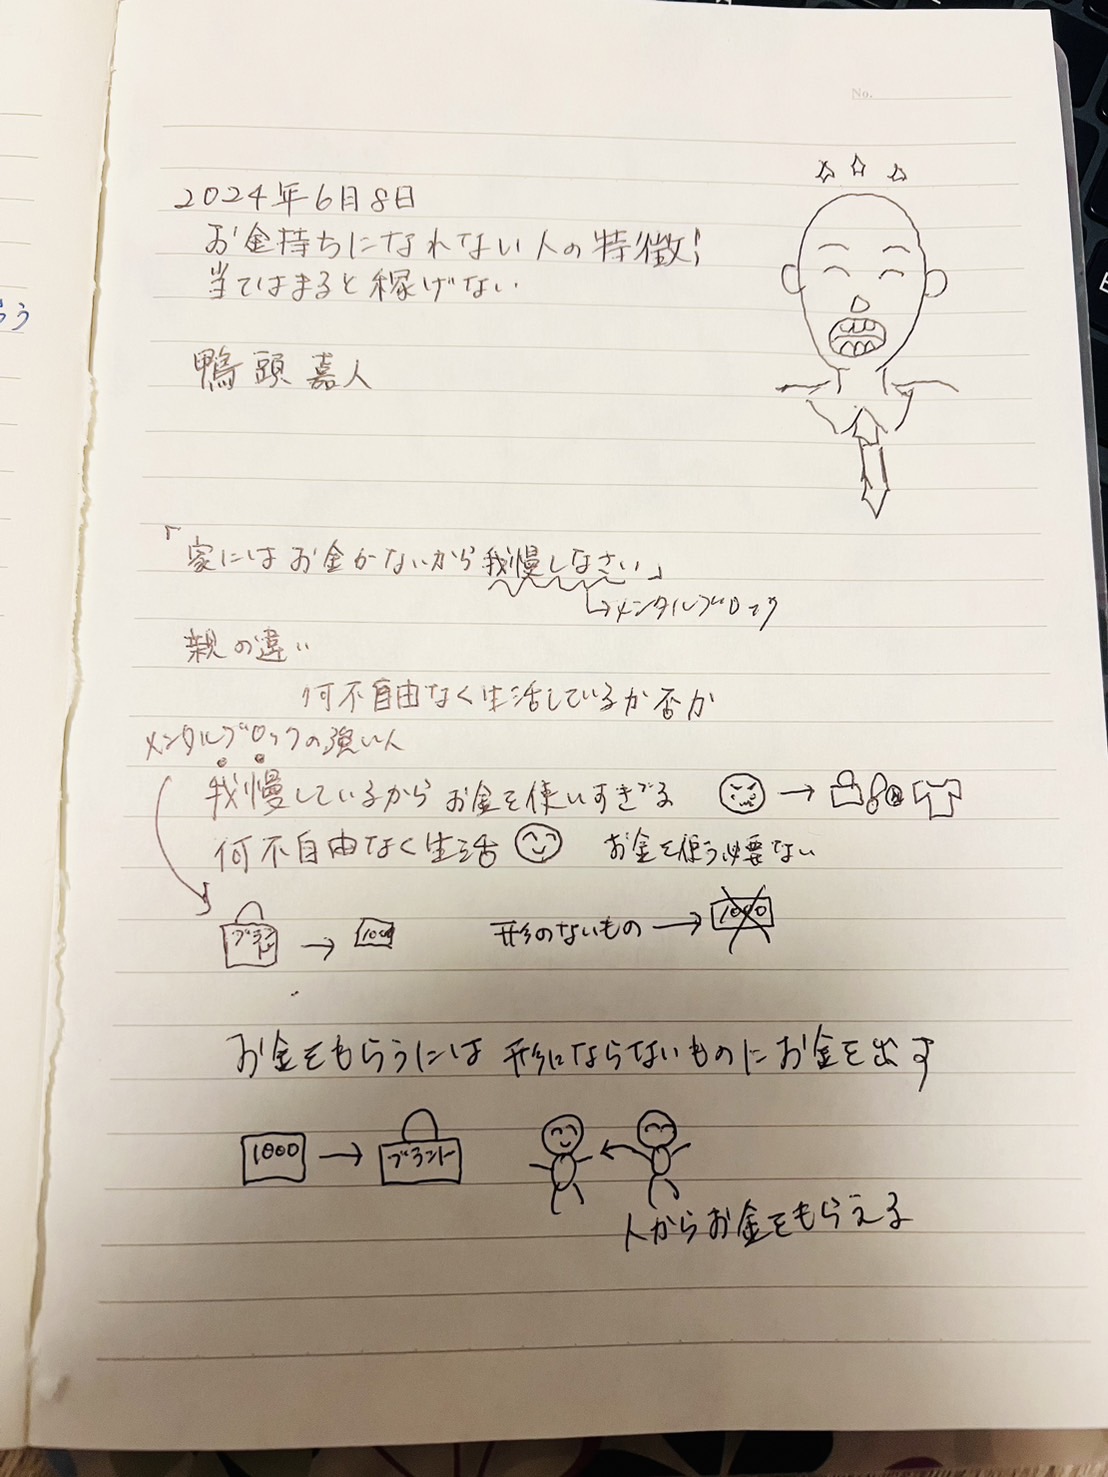 No.
2024年6月8日
お金持ちになれない人の特徴!
当てはまると稼げない
鴨頭嘉人
「家にはお金がないから我慢しなさい」
→メンタルブロック
親の違い
何不自由なく生活しているか否か
メンタルブロックの強い人
我慢しているからお金を使いすぎる →
何不自由なく生活 お金を使う必要ない
ブランド → 1000 形のないもの → 1000
お金をもらうには形にならないものにお金を出す
1000 → ブランド ←
人からお金をもらえる